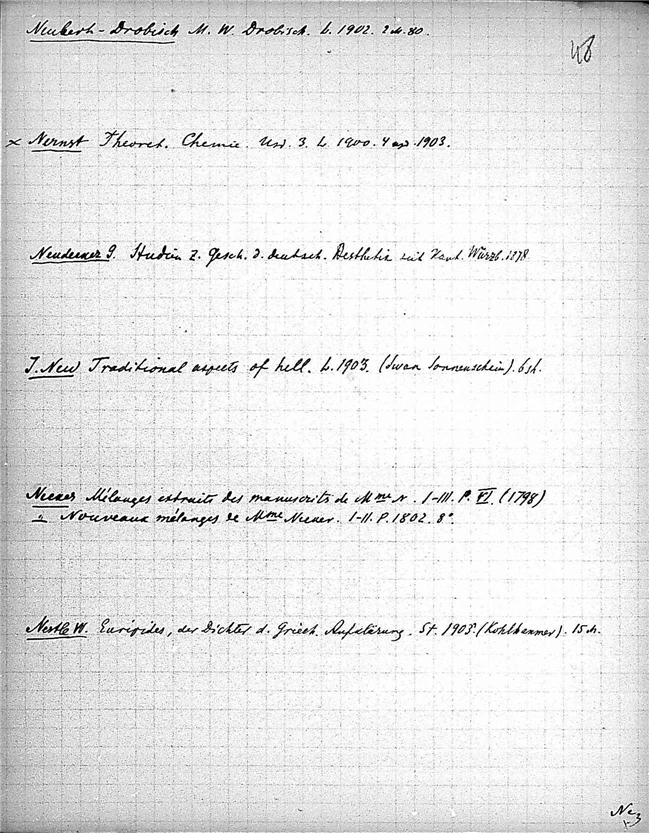 48
Neubert-Drobisch M. W. Drobisch. L. 1902. 2 M. 80.
× Nernst Theoret. Chemie. 3. L. 1900. 4 1903.
Neudecker G. Studien z. Gesch. d. deutsch. Aesthetik seit Kant. Würzb. 1878
J. New Traditional aspects of hell. L. 1903. (Swan Sonnenschein). 6 sh.
Necker Mélanges extraits des manuscrits de Mme N. I-III. P. VI. (1798)
Nouveaux mélanges de Mme Necker. I-II. P. 1802. 8°.
Nestle W. Euripides, der Dichter d. Griech. Aufklärung. St. 1905. (Kohlhammer). 15 M.
Ne